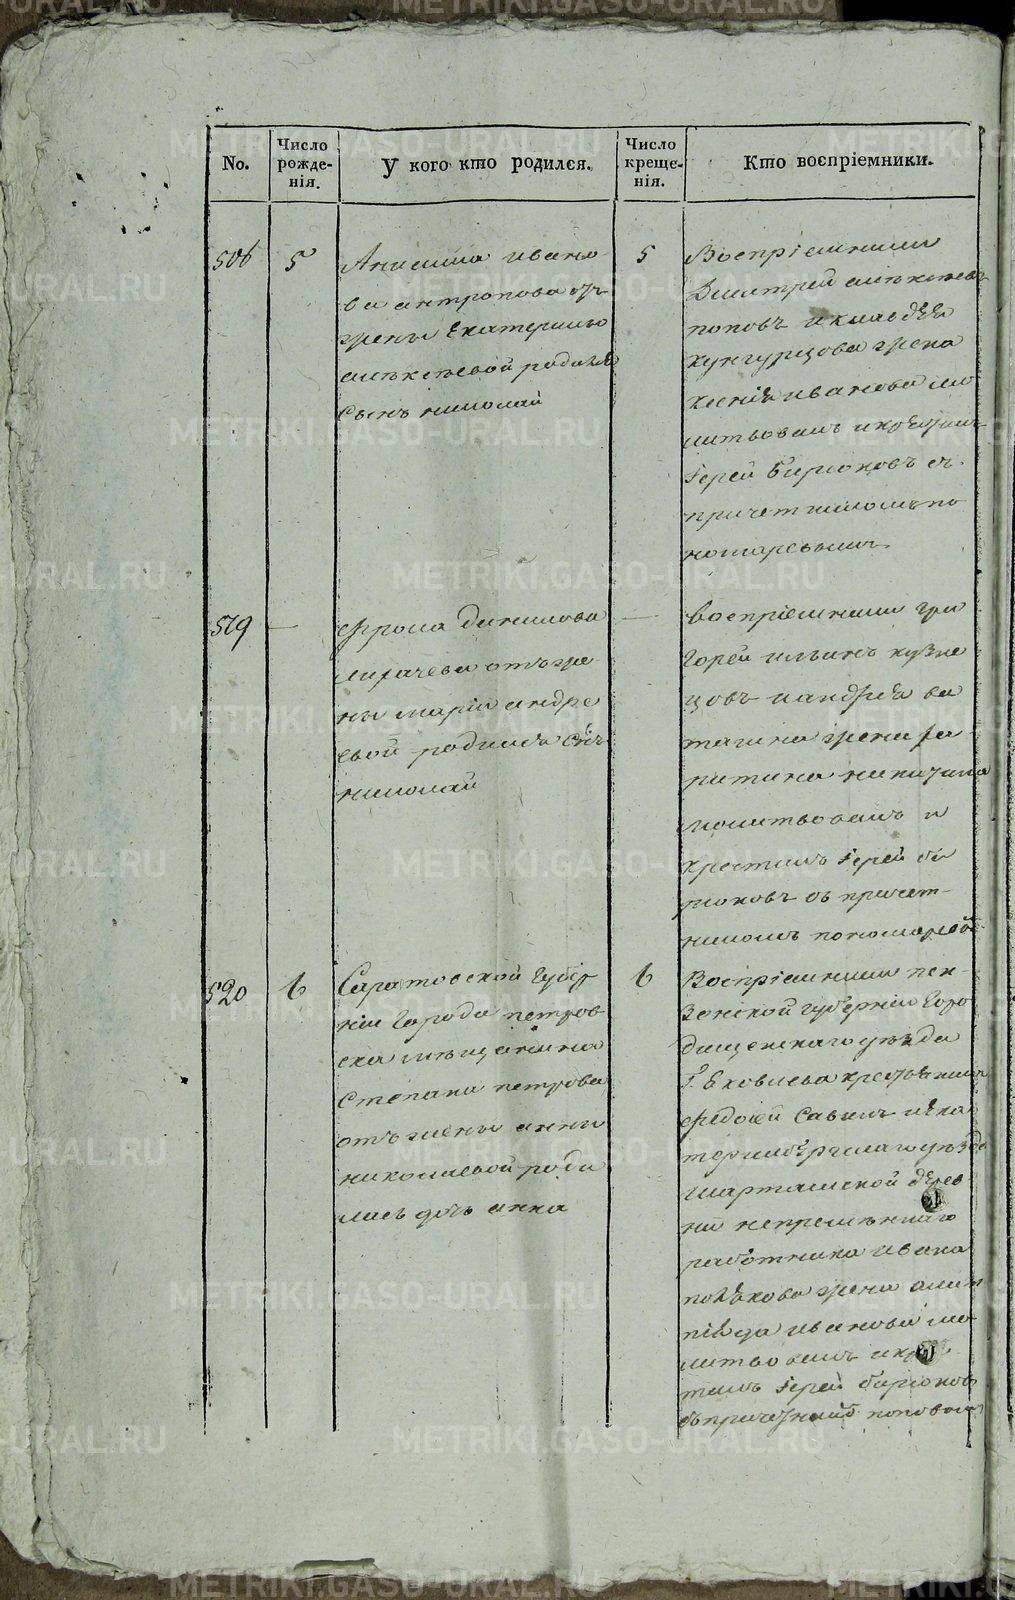 No.
Число рожде-нія.
У кого кто родился.
Число креще-нія.
Кто воспріемники.
506
5
Анисима ивано
ва антропова отъ
жены Екатерины
алѣксѣевой родился
Сынъ николай
5
Воспріемники
Дмитрей алѣксѣевъ
поповъ и
кунгурцова жена
ксенія иванова мо
литвовалъ и крестилъ
Іерей Бирюковъ съ
причетникомъ по
номаревымъ
519
—
фрола данилова
лихачева отъ же
ны маріи андре
евой родился сынъ
николай
—
воспріемники гри
горей ильинъ кузне
цовъ и андрея ва
тагина жена
никитина
молитвовалъ и
крестилъ Іерей би
рюковъ съ причет-
никомъ пономаревы
520
6
Саратовской губер
ніи города петров
ска мѣщанина
Степана петрова
отъ жены анны
николаевой роди
лась дочь анна
6
Воспріемники пен-
зенской губерніи Горо
дищенскаго уѣзда
крестьянинъ
федосей Савинъ и Ека
теринбургскаго уѣзда
шарташской дерев
ни непремѣннаго
работника ивана
полякова жена олим
піяда иванова мо
литвовалъ и крес
тилъ Іерей бирюковъ
съ причетникомъ поповым
METRIKI.GASO-URAL.RU